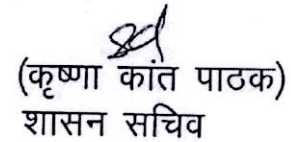 (कृष्णा कांत पाठक)
शासन सचिव